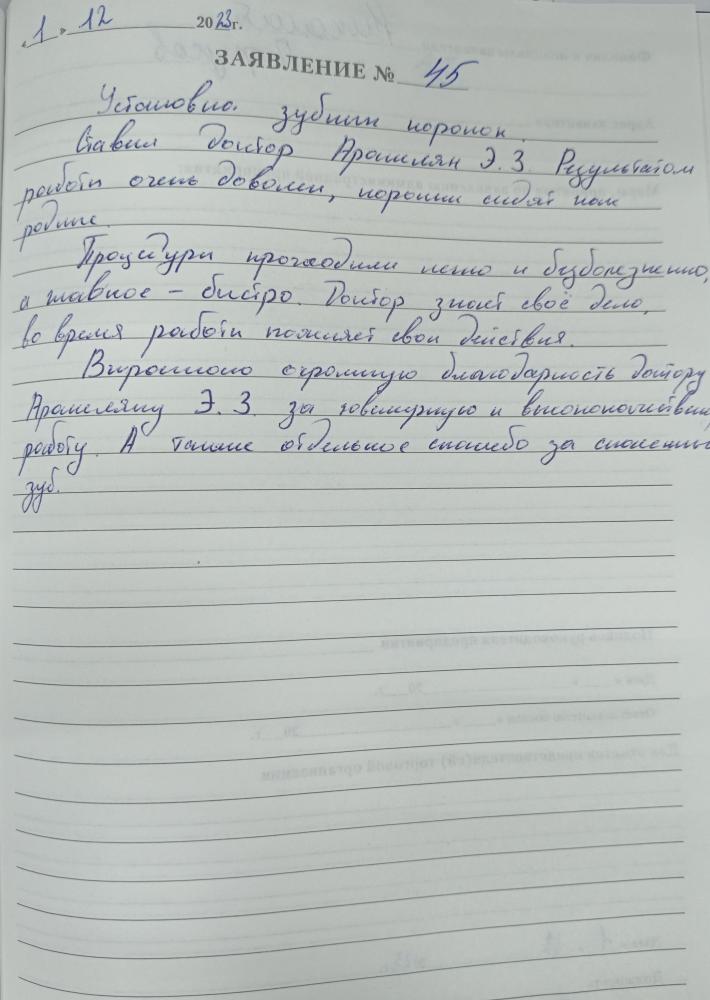 « 1 » 12 2023 г.
ЗАЯВЛЕНИЕ № 45
Установка зубных коронок.
Ставил доктор Аракелян Э. З. Результатом
работы очень доволен, коронки сидят как
родные.
Процедуры проходили легко и безболезненно,
а главное – быстро. Доктор знает своё дело,
во время работы поясняет свои действия.
Выражаю огромную благодарность доктору
Аракеляну Э. З. за ювелирную и высококачественную
работу. А также отдельное спасибо за спасенный
зуб.